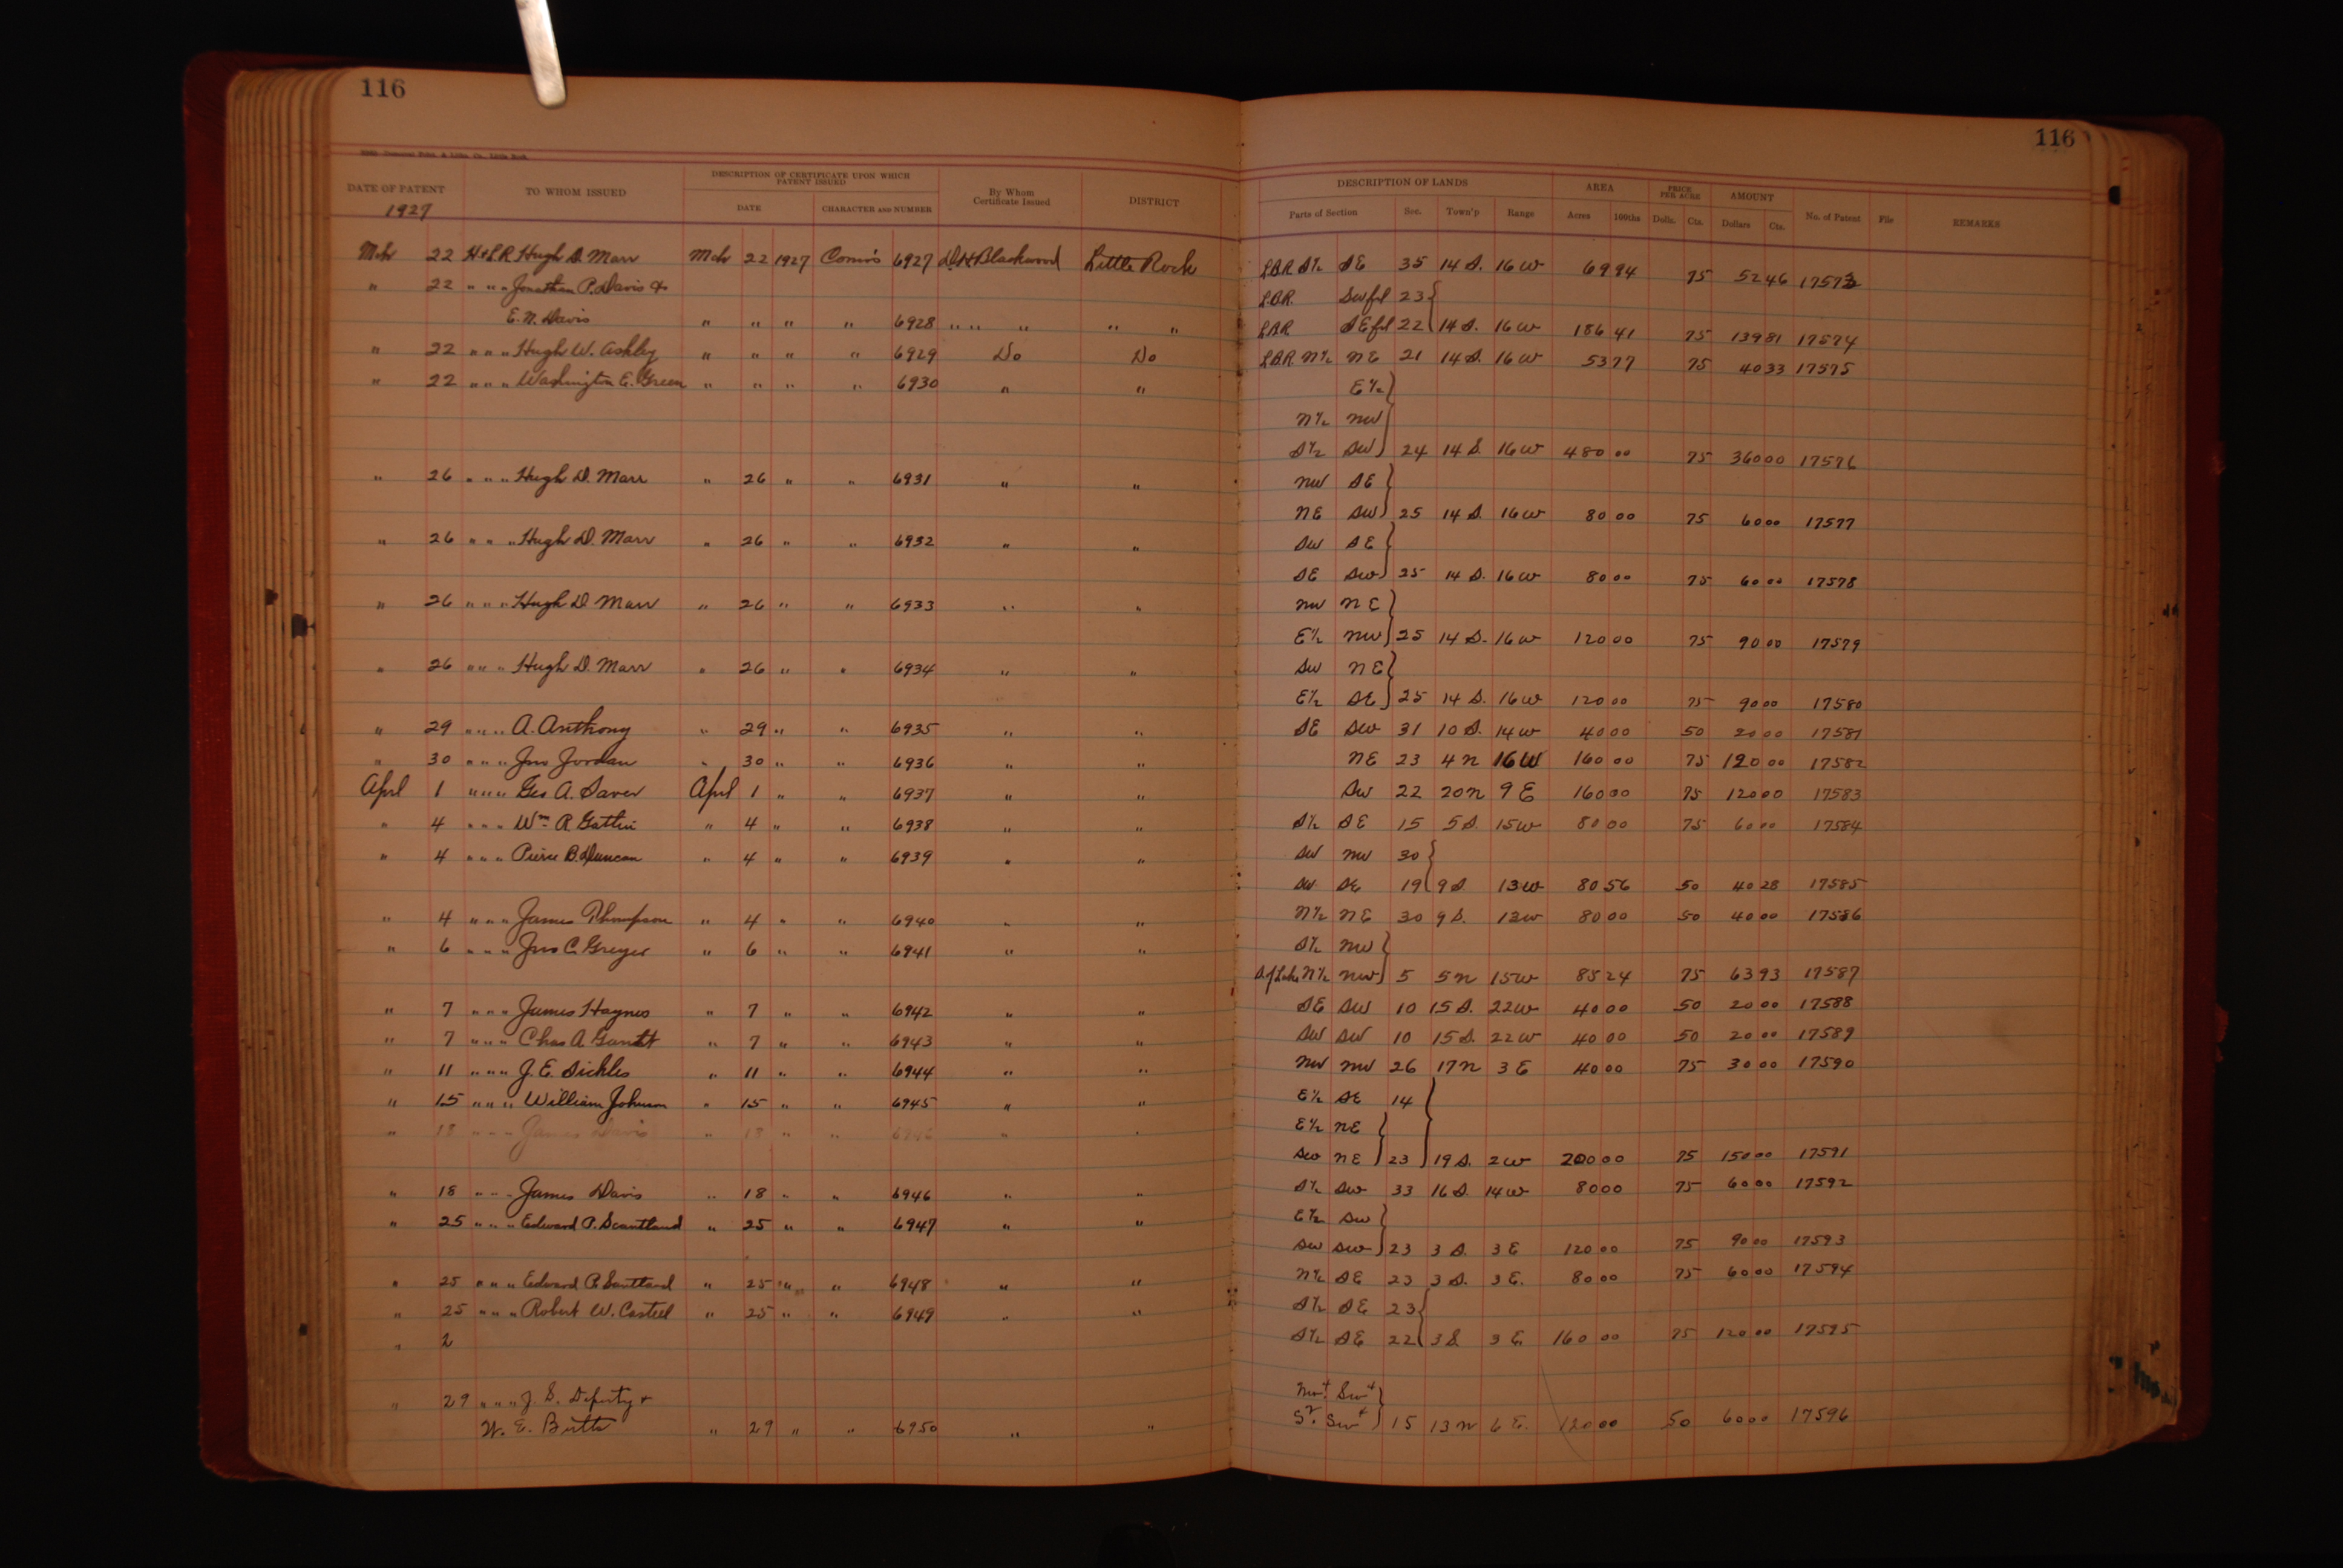 116
116
DATE OF PATENT TO WHOM ISSUED DESCRIPTION OF CERTIFICATE UPON WHICH PATENT ISSUED By Whom Certificate Issued DISTRICT DESCRIPTION OF LANDS AREA PRICE PER ACRE AMOUNT No. of Patent File REMARKS
1927 DATE CHARACTER AND NUMBER Parts of Section Sec. Town'p Range Acres 100ths Dolls. Cts. Dollars Cts.
Mch 22 H&LR Hugh D. Marr Mch 22 1927 Comr's 6927 D.H. Blackwood Little Rock LBR S½ SE 35 14 S. 16 W 69 94 75 52 46 17573
" 22 " " " Jonathan P. Davis & LBR. SW frl 23
E. N. Davis " " " " 6928 " " " " " LBR SE frl 22 14 S. 16 W 186 41 75 139 81 17574
" 22 " " " Hugh W. Ashley " " " " 6929 Do Do LBR. N½ NE 21 14 S. 16 W 53 77 75 40 33 17575
" 22 " " " Washington E. Green " " " " 6930 " " E½
N½ NW
S½ SW 24 14 S. 16 W 480 00 75 360 00 17576
" 26 " " " Hugh D. Marr " 26 " " 6931 " " NW SE
NE SW 25 14 S. 16 W 80 00 75 60 00 17577
" 26 " " " Hugh D. Marr " 26 " " 6932 " " SW SE
SE SW 25 14 S. 16 W 80 00 75 60 00 17578
" 26 " " " Hugh D. Marr " 26 " " 6933 " " NW NE
E½ NW 25 14 S. 16 W 120 00 75 90 00 17579
" 26 " " " Hugh D. Marr " 26 " " 6934 " " SW NE
E½ SE 25 14 S. 16 W 120 00 75 90 00 17580
" 29 " " " A. Anthony " 29 " " 6935 " " SE SW 31 10 S. 14 W 40 00 50 20 00 17581
" 30 " " " Jno Jordan " 30 " " 6936 " " NE 23 4 N 16 W 160 00 75 120 00 17582
Aprl 1 " " " Geo A. Saver Aprl 1 " " 6937 " " SW 22 20 N 9 E 160 00 75 120 00 17583
" 4 " " " Wm. R. Gattin " 4 " " 6938 " " S½ SE 15 5 S. 15 W 80 00 75 60 00 17584
" 4 " " " Pierce B. Duncan " 4 " " 6939 " " SW NW 30
SW SE 19 9 S 13 W 80 56 50 40 28 17585
" 4 " " " James Thompson " 4 " " 6940 " " N½ NE 30 9 S. 13 W 80 00 50 40 00 17586
" 6 " " " Jno C. Greyer " 6 " " 6941 " " S½ NW
S. of Lake N½ NW 5 5 N 15 W 85 24 75 63 93 17587
" 7 " " " James Haynes " 7 " " 6942 " " SE SW 10 15 S. 22 W 40 00 50 20 00 17588
" 7 " " " Chas A. Gantt " 7 " " 6943 " " SW SW 10 15 S. 22 W 40 00 50 20 00 17589
" 11 " " " J. E. Sickles " 11 " " 6944 " " NW NW 26 17 N 3 E 40 00 75 30 00 17590
" 15 " " " William Johnson " 15 " " 6945 " " E½ SE 14
" 18 " " " James Davis " 18 " " 6946 " " E½ NE
SW NE 23 19 S. 2 W 200 00 75 150 00 17591
" 18 " " " James Davis " 18 " " 6946 " " S½ SW 33 16 S. 14 W 80 00 75 60 00 17592
" 25 " " " Edward P. Scantland " 25 " " 6947 " " E½ SW
SW SW 23 3 S. 3 E 120 00 75 90 00 17593
" 25 " " " Edward P. Scantland " 25 " " 6948 " " N½ SE 23 3 S. 3 E. 80 00 75 60 00 17594
" 25 " " " Robert W. Casteel " 25 " " 6949 " " S½ SE 23
" 2 S½ SE 22 3 S. 3 E. 160 00 75 120 00 17595
" 29 " " " J. S. Deputy & NW4 SW4
W. E. Butts " 29 " " 6950 " " S2 SW4 15 13 N 6 E. 120 00 50 60 00 17596